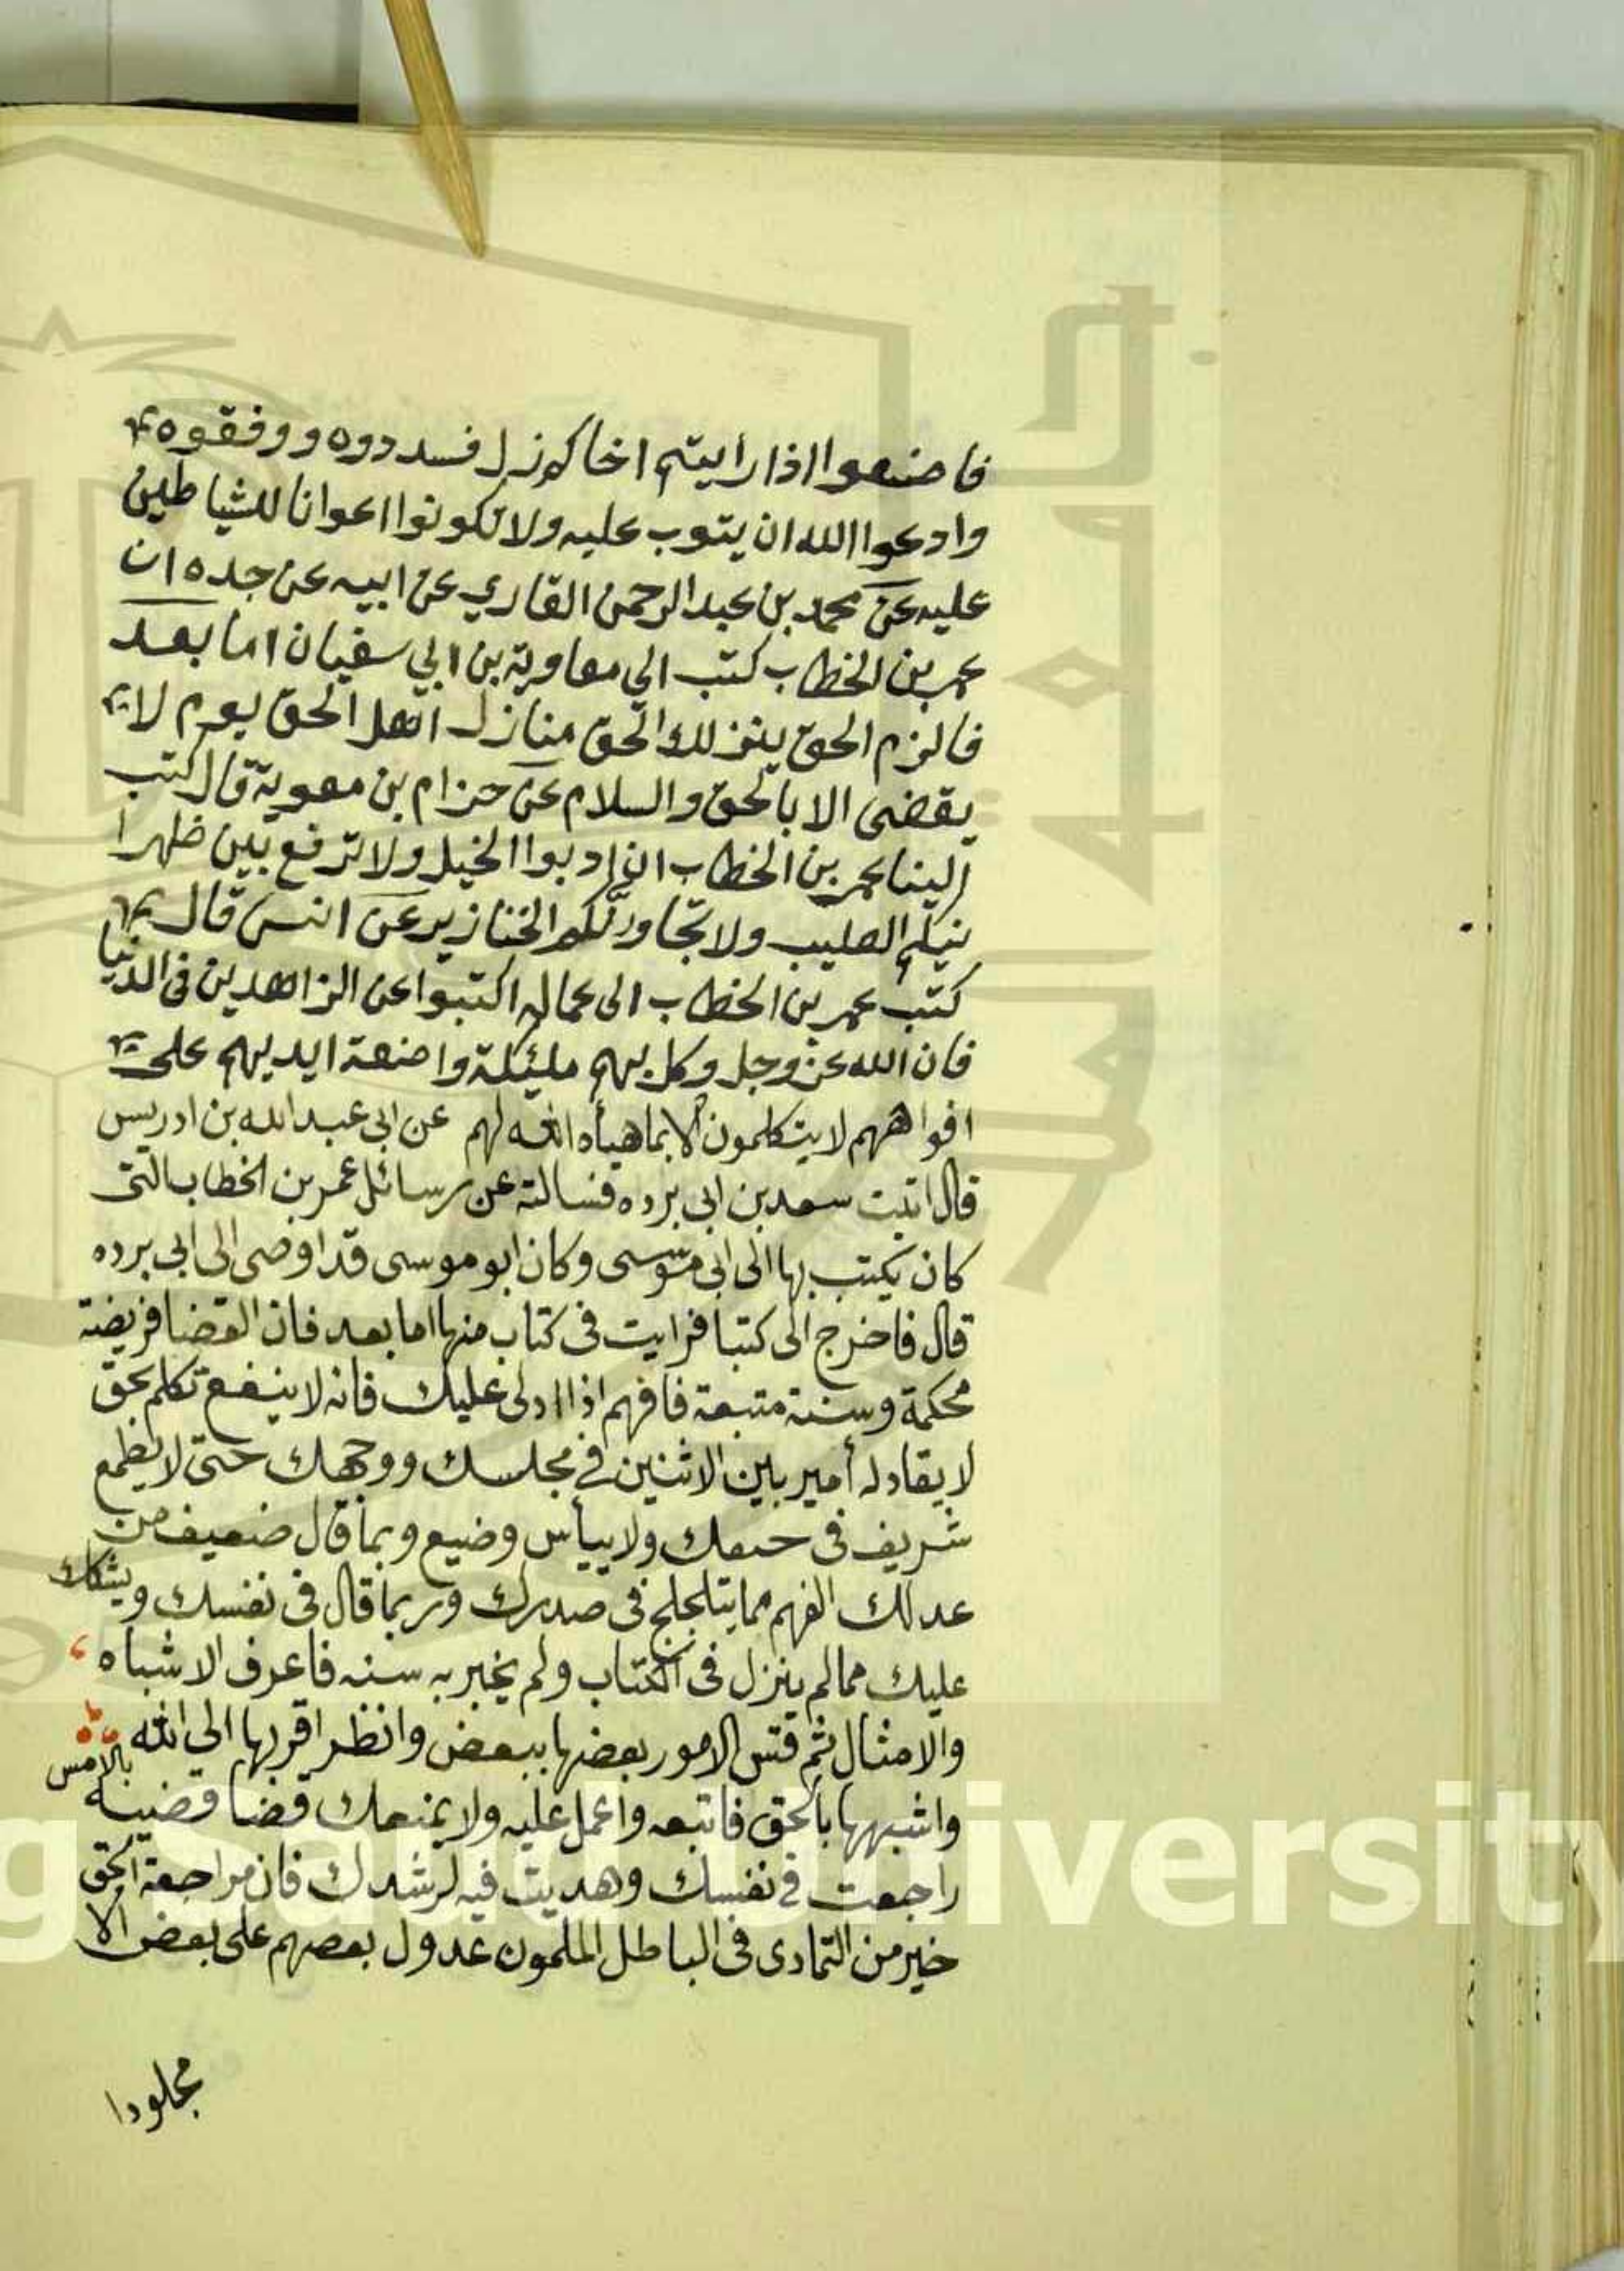 فاصنعوا اذا رايتم اخاكم زل فسددوه ووفقوه
وادعوا الله ان يتوب عليه ولا تكونوا اعوانا للشياطين
عليه عن محمد بن عبد الرحمن القاري عن ابيه عن جده ان
عمر بن الخطاب كتب الي معاوية بن ابي سفيان اما بعد
فالزم الحق ينزلك الحق منازل اهل الحق يوم لا
يقضى الا بالحق والسلام عن حزام بن معوية قال كتب
الينا عمر بن الخطاب ان ادبوا الخيل ولا ترفع بين ظهرا
نيكم الصليب ولا تجاورنكم الخنازير عن انس قال
كتب عمر بن الخطاب الى عماله اكتبوا عن الزاهدين فى الدنيا
فان الله عز وجل وكل بهم مليكة واضعة ايديهم على
افواههم لا يتكلمون الا بما هيأه الله لهم عن ابى عبد الله بن ادريس
قال اتيت سعد بن ابى برده فسالته عن رسائل عمر بن الخطاب التى
كان يكتب بها الى ابى موسى وكان ابو موسى قد اوصى الى ابى برده
قال فاخرج الى كتبا فرايت فى كتاب منها اما بعد فان القضا فريضة
محكمة وسنة متبعة فافهم اذا ادلى عليك فانه لا ينفع تكلم بحق
لا يقاد له أمير بين الاثنين في مجلسك ووجهك حتى لا يطمع
شريف فى حيفك ولا ييأس وضيع وبما قال ضعيف من
عدلك الفهم مما يتلجلج فى صدرك وربما قال فى نفسك ويشكك
عليك مما لم ينزل فى الكتاب ولم يخبر به سنه فاعرف الاشباه
والامثال ثم قس الامور بعضها ببعض وانظر اقربها الي الله
واشبهها بالحق فاتبعه واعمل عليه ولا يمنعك قضا قضيته بالامس
راجعت في نفسك وهديت فيه لرشدك فان مراجعة الحق
خير من التمادى فى الباطل المسلمون عدول بعضهم على بعض الا
مجلودا